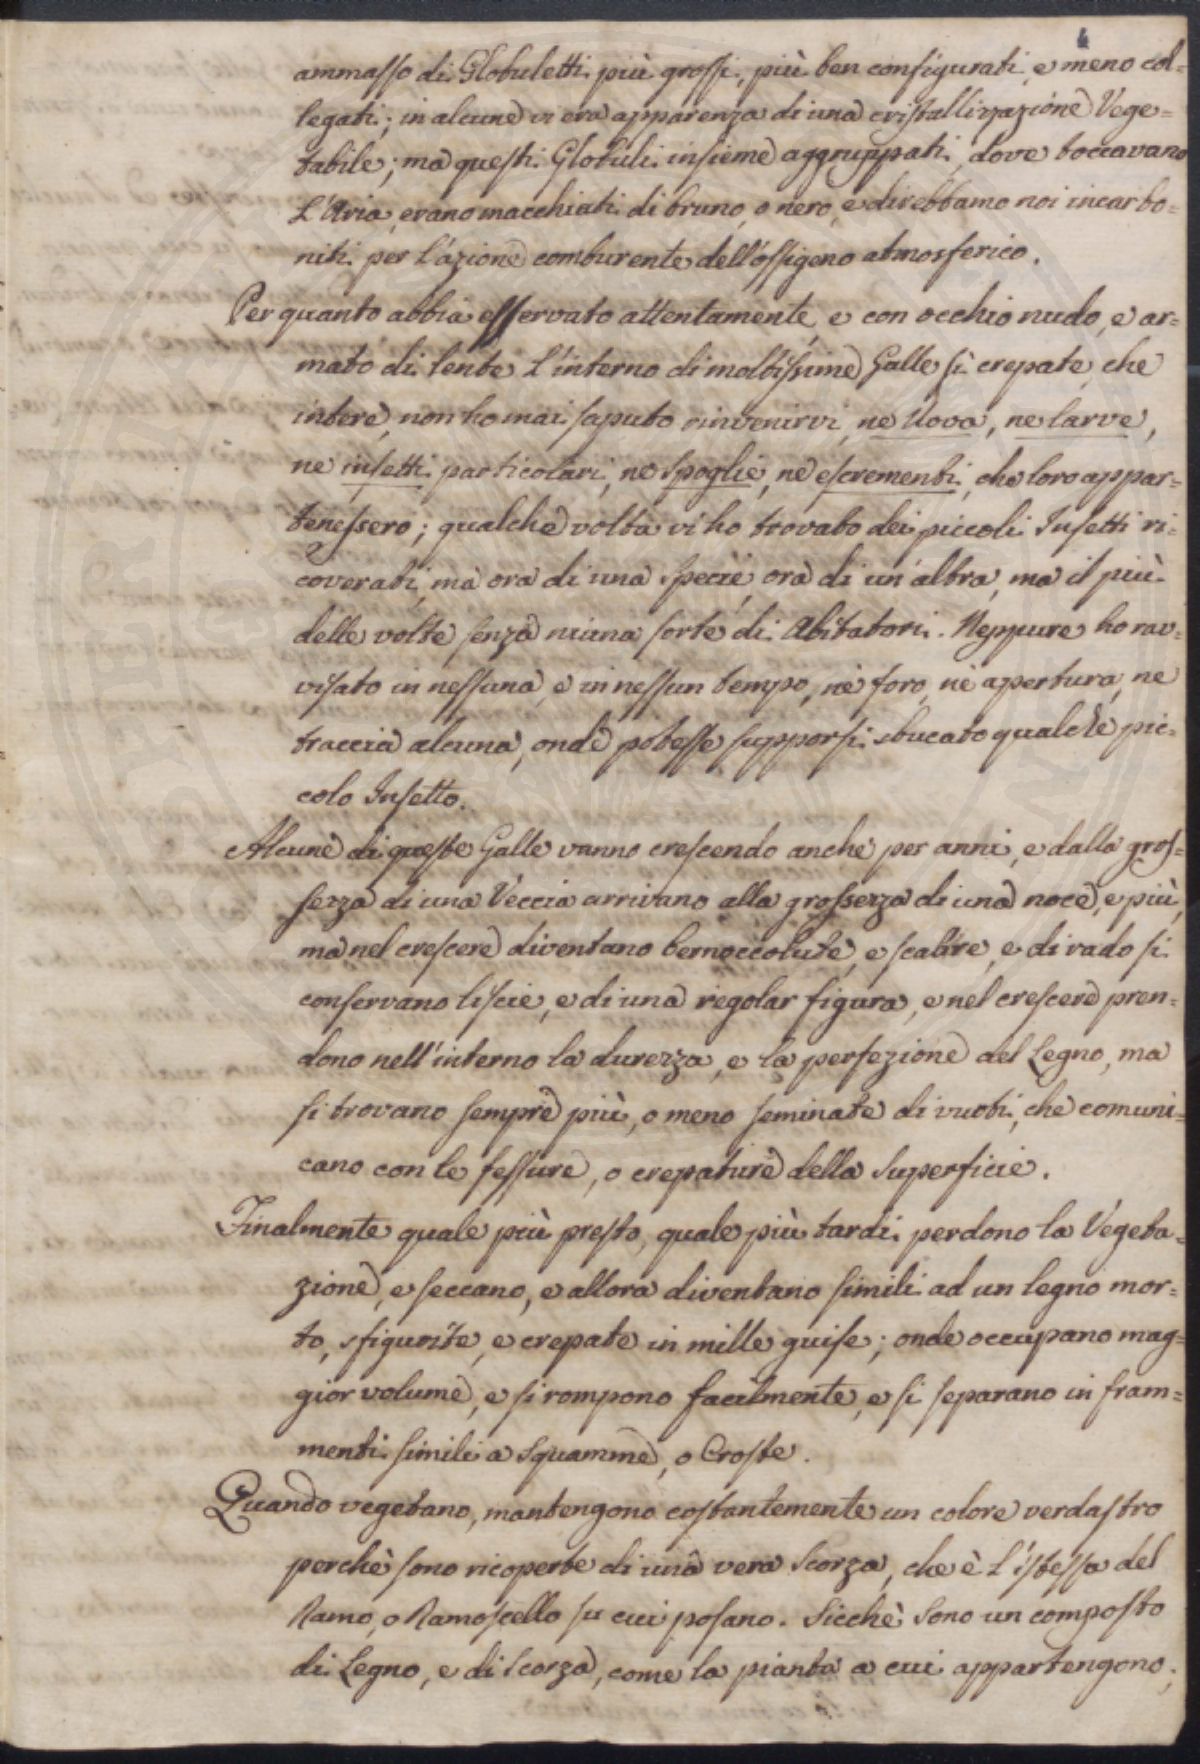 4
ammasso di Globuletti più grossi, più ben configurati, e meno col=
legati; in alcune vi era apparenza di una cristallizzazione Vege=
tabile; ma questi Globuli insieme aggruppati, dove toccavano
L'Aria, erano macchiati di bruno, o nero, e direbbamo noi incarbo=
niti per l'azione comburente dell'ossigeno atmosferico.
Per quanto abbia osservato attentamente, e con occhio nudo, e ar=
mato di lente L'interno di moltissime Galle sì crepate, che
intere, non ho mai saputo rinvenirvi, ne Uova, ne larve,
ne insetti particolari, ne spoglie, ne escrementi, che loro appar=
tenessero; qualche volta vi ho trovato dei piccoli Insetti ri=
coverati, ma ora di una specie, ora di un'altra, ma il più
delle volte senza niuna sorte di Abitatori. Neppure ho rav=
visato in nessuna, e in nessun tempo, nè foro, nè apertura, ne
traccia alcuna, onde potesse supporsi sbucato qualche pic=
colo Insetto.
Alcune di queste Galle vanno crescendo anche per anni, e dalla gros=
sezza di una Veccia arrivano alla grossezza di una noce, e più,
ma nel crescere diventano bernoccolute, e scabre, e di rado si
conservano liscie, e di una regolar figura, e nel crescere pren=
dono nell'interno la durezza, e la perfezione del Legno, ma
si trovano sempre più, o meno seminate di vuoti, che comuni=
cano con le fessure, o crepature della Superficie.
Finalmente quale più presto, quale più tardi perdono la Vegeta=
zione, e seccano, e allora diventano simili ad un legno mor=
to, sfigurite, e crepate in mille guise; onde occupano mag=
gior volume, e si rompono facilmente, e si separano in fram=
menti simili a Squamme, o Croste.
Quando vegetano, mantengono costantemente un colore verdastro
perchè sono ricoperte di una vera Scorza, che è L'istessa del
Ramo, o Ramoscello su cui posano. Sicchè Sono un composto
di Legno, e di Scorza, come la pianta a cui appartengono;